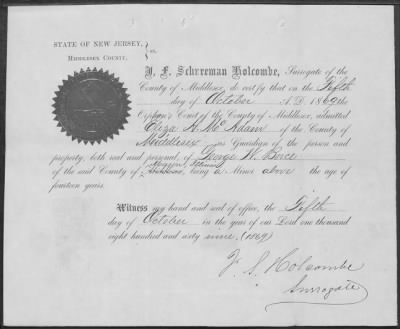 STATE OF NEW JERSEY,
MIDDLESEX COUNTY.
} ss.
J. F. Schureman Holcombe, Surrogate of the
County of Middlesex, do certify that on the Fifth
day of October A.D. 1869 the
Orphan's Court of the County of Middlesex, admitted
Eliza A. McAdam of the County of
Middlesex as Guardian of the person and
property, both real and personal, of George W.
of the said County of Middlesex, being a Minor above the age of
fourteen years.
Witness my hand and seal of office, the Fifth
day of October in the year of our Lord one thousand
eight hundred and sixty nine. (1869)
Holcombe
Surrogate